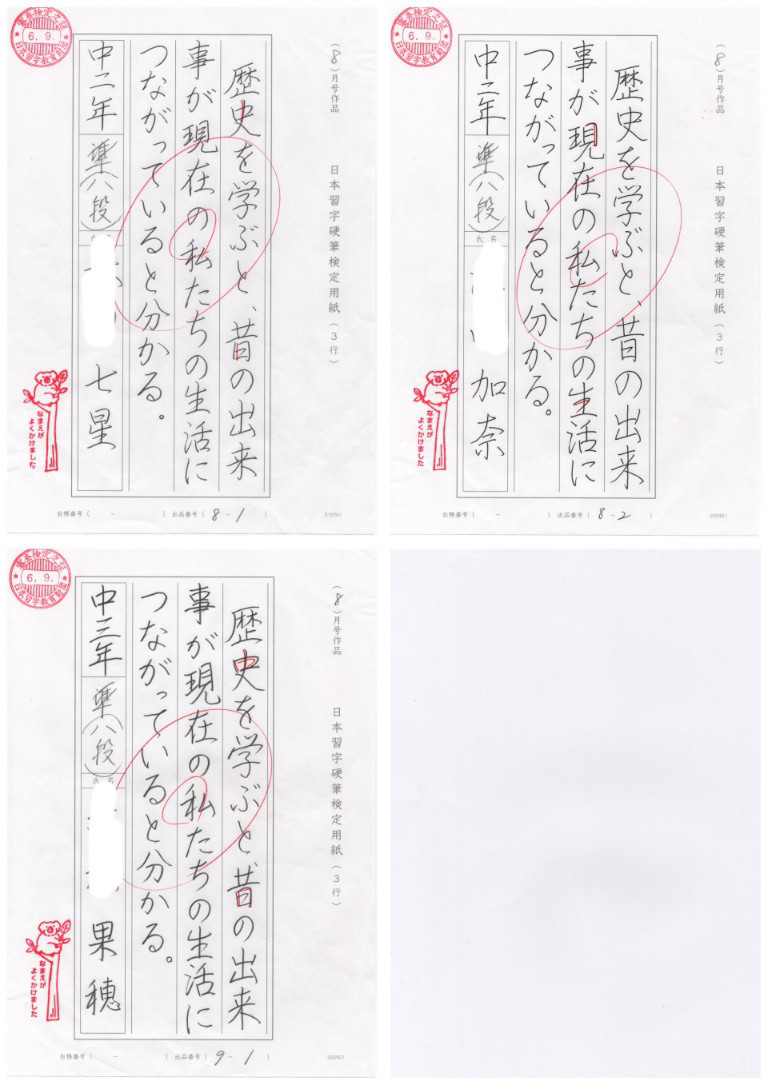 審査検定之証
6.9.
日本習字教育財団
(8)月号作品
日本習字硬筆検定用紙(3行)
歴史を学ぶと、昔の出来
事が現在の私たちの生活に
つながっていると分かる。
中二年
準(八段)
氏名
七星
なまえが
よくかけました
台帳番号( - ) 出品番号(8-1)
審査検定之証
6.9.
日本習字教育財団
(8)月号作品
日本習字硬筆検定用紙(3行)
歴史を学ぶと、昔の出来
事が現在の私たちの生活に
つながっていると分かる。
中二年
準(八段)
氏名
加奈
なまえが
よくかけました
台帳番号( - ) 出品番号(8-2)
審査検定之証
6.9.
日本習字教育財団
(8)月号作品
日本習字硬筆検定用紙(3行)
歴史を学ぶと、昔の出来
事が現在の私たちの生活に
つながっていると分かる。
中三年
準(八段)
氏名
果穂
なまえが
よくかけました
台帳番号( - ) 出品番号(9-1)